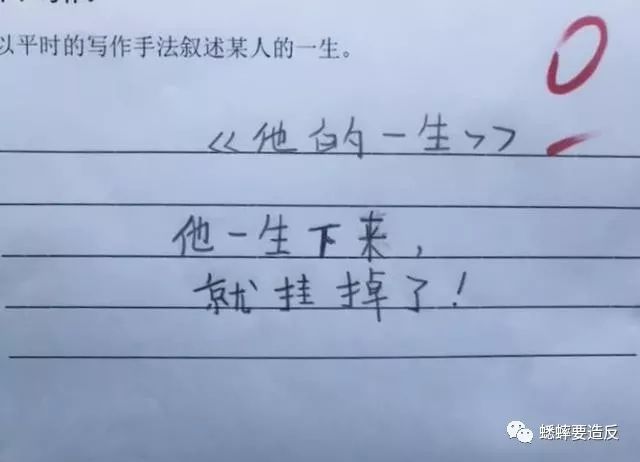 以平时的写作手法叙述某人的一生。
0
《他的一生》
他一生下来,
就挂掉了!
蟋蟀要造反